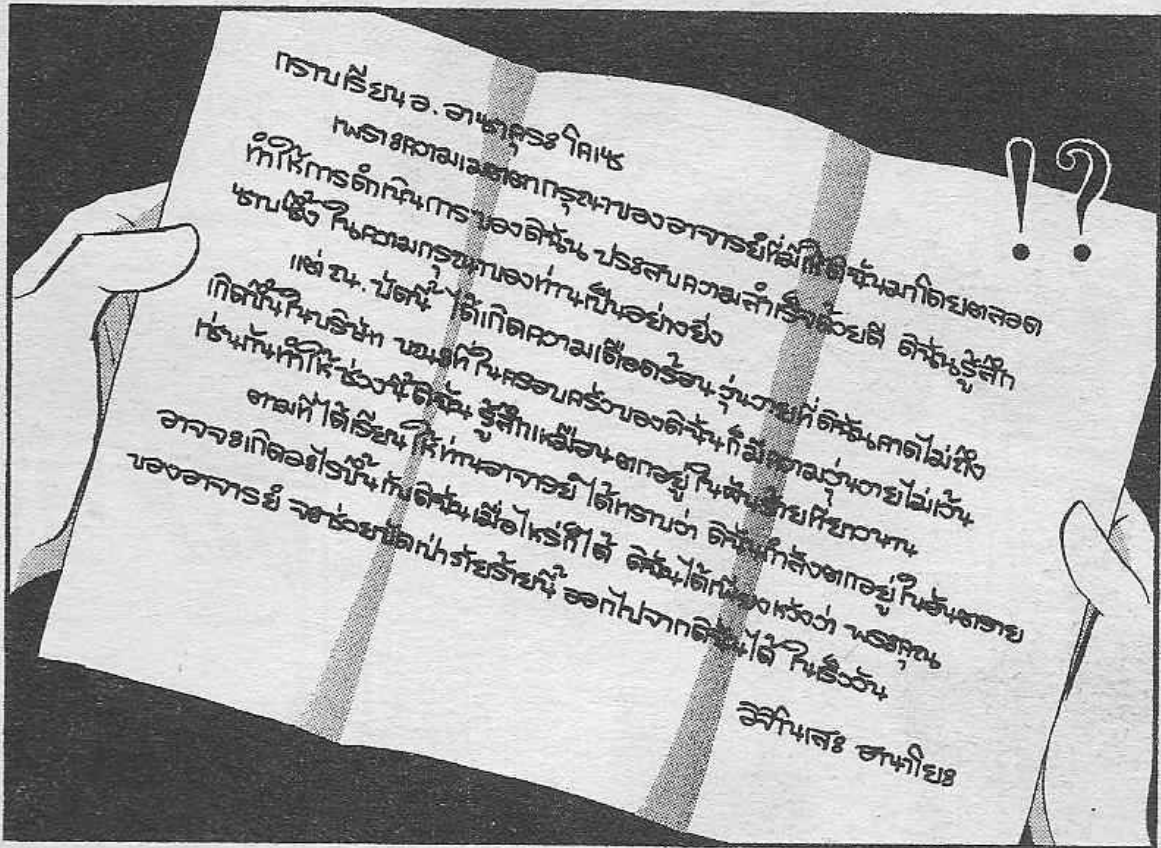 กราบเรียน อ. อานาคุระ โคเซ
เพราะความเมตตากรุณาของอาจารย์ที่มีให้ดิฉันมาโดยตลอด
ทำให้การดำเนินการของดิฉัน ประสบความสำเร็จด้วยดี ดิฉันรู้สึก
ซาบซึ้ง ในความกรุณาของท่านเป็นอย่างยิ่ง
แต่ ณ. บัดนี้ ได้เกิดความเดือดร้อน วุ่นวายที่ดิฉันคาดไม่ถึง
เกิดขึ้นในบริษัท ขณะที่ในครอบครัวของดิฉันก็มีความวุ่นวายไม่เว้น
เช่นกันทำให้ช่วงนี้ดิฉัน รู้สึกเหมือนตกอยู่ในฝันร้ายที่ยาวนาน
ตามที่ได้เรียนให้ท่านอาจารย์ ได้ทราบว่า ดิฉันกำลังตกอยู่ในอันตราย
อาจจะเกิดอะไรขึ้นกับดิฉันเมื่อไหร่ก็ได้ ดิฉันได้แต่หวังว่า พระคุณ
ของอาจารย์ จะช่วยปัดเป่าภัยร้ายนี้ ออกไปจากดิฉันได้ ในเร็ววัน
อิจิโนเสะ ฮานาโยะ
!?